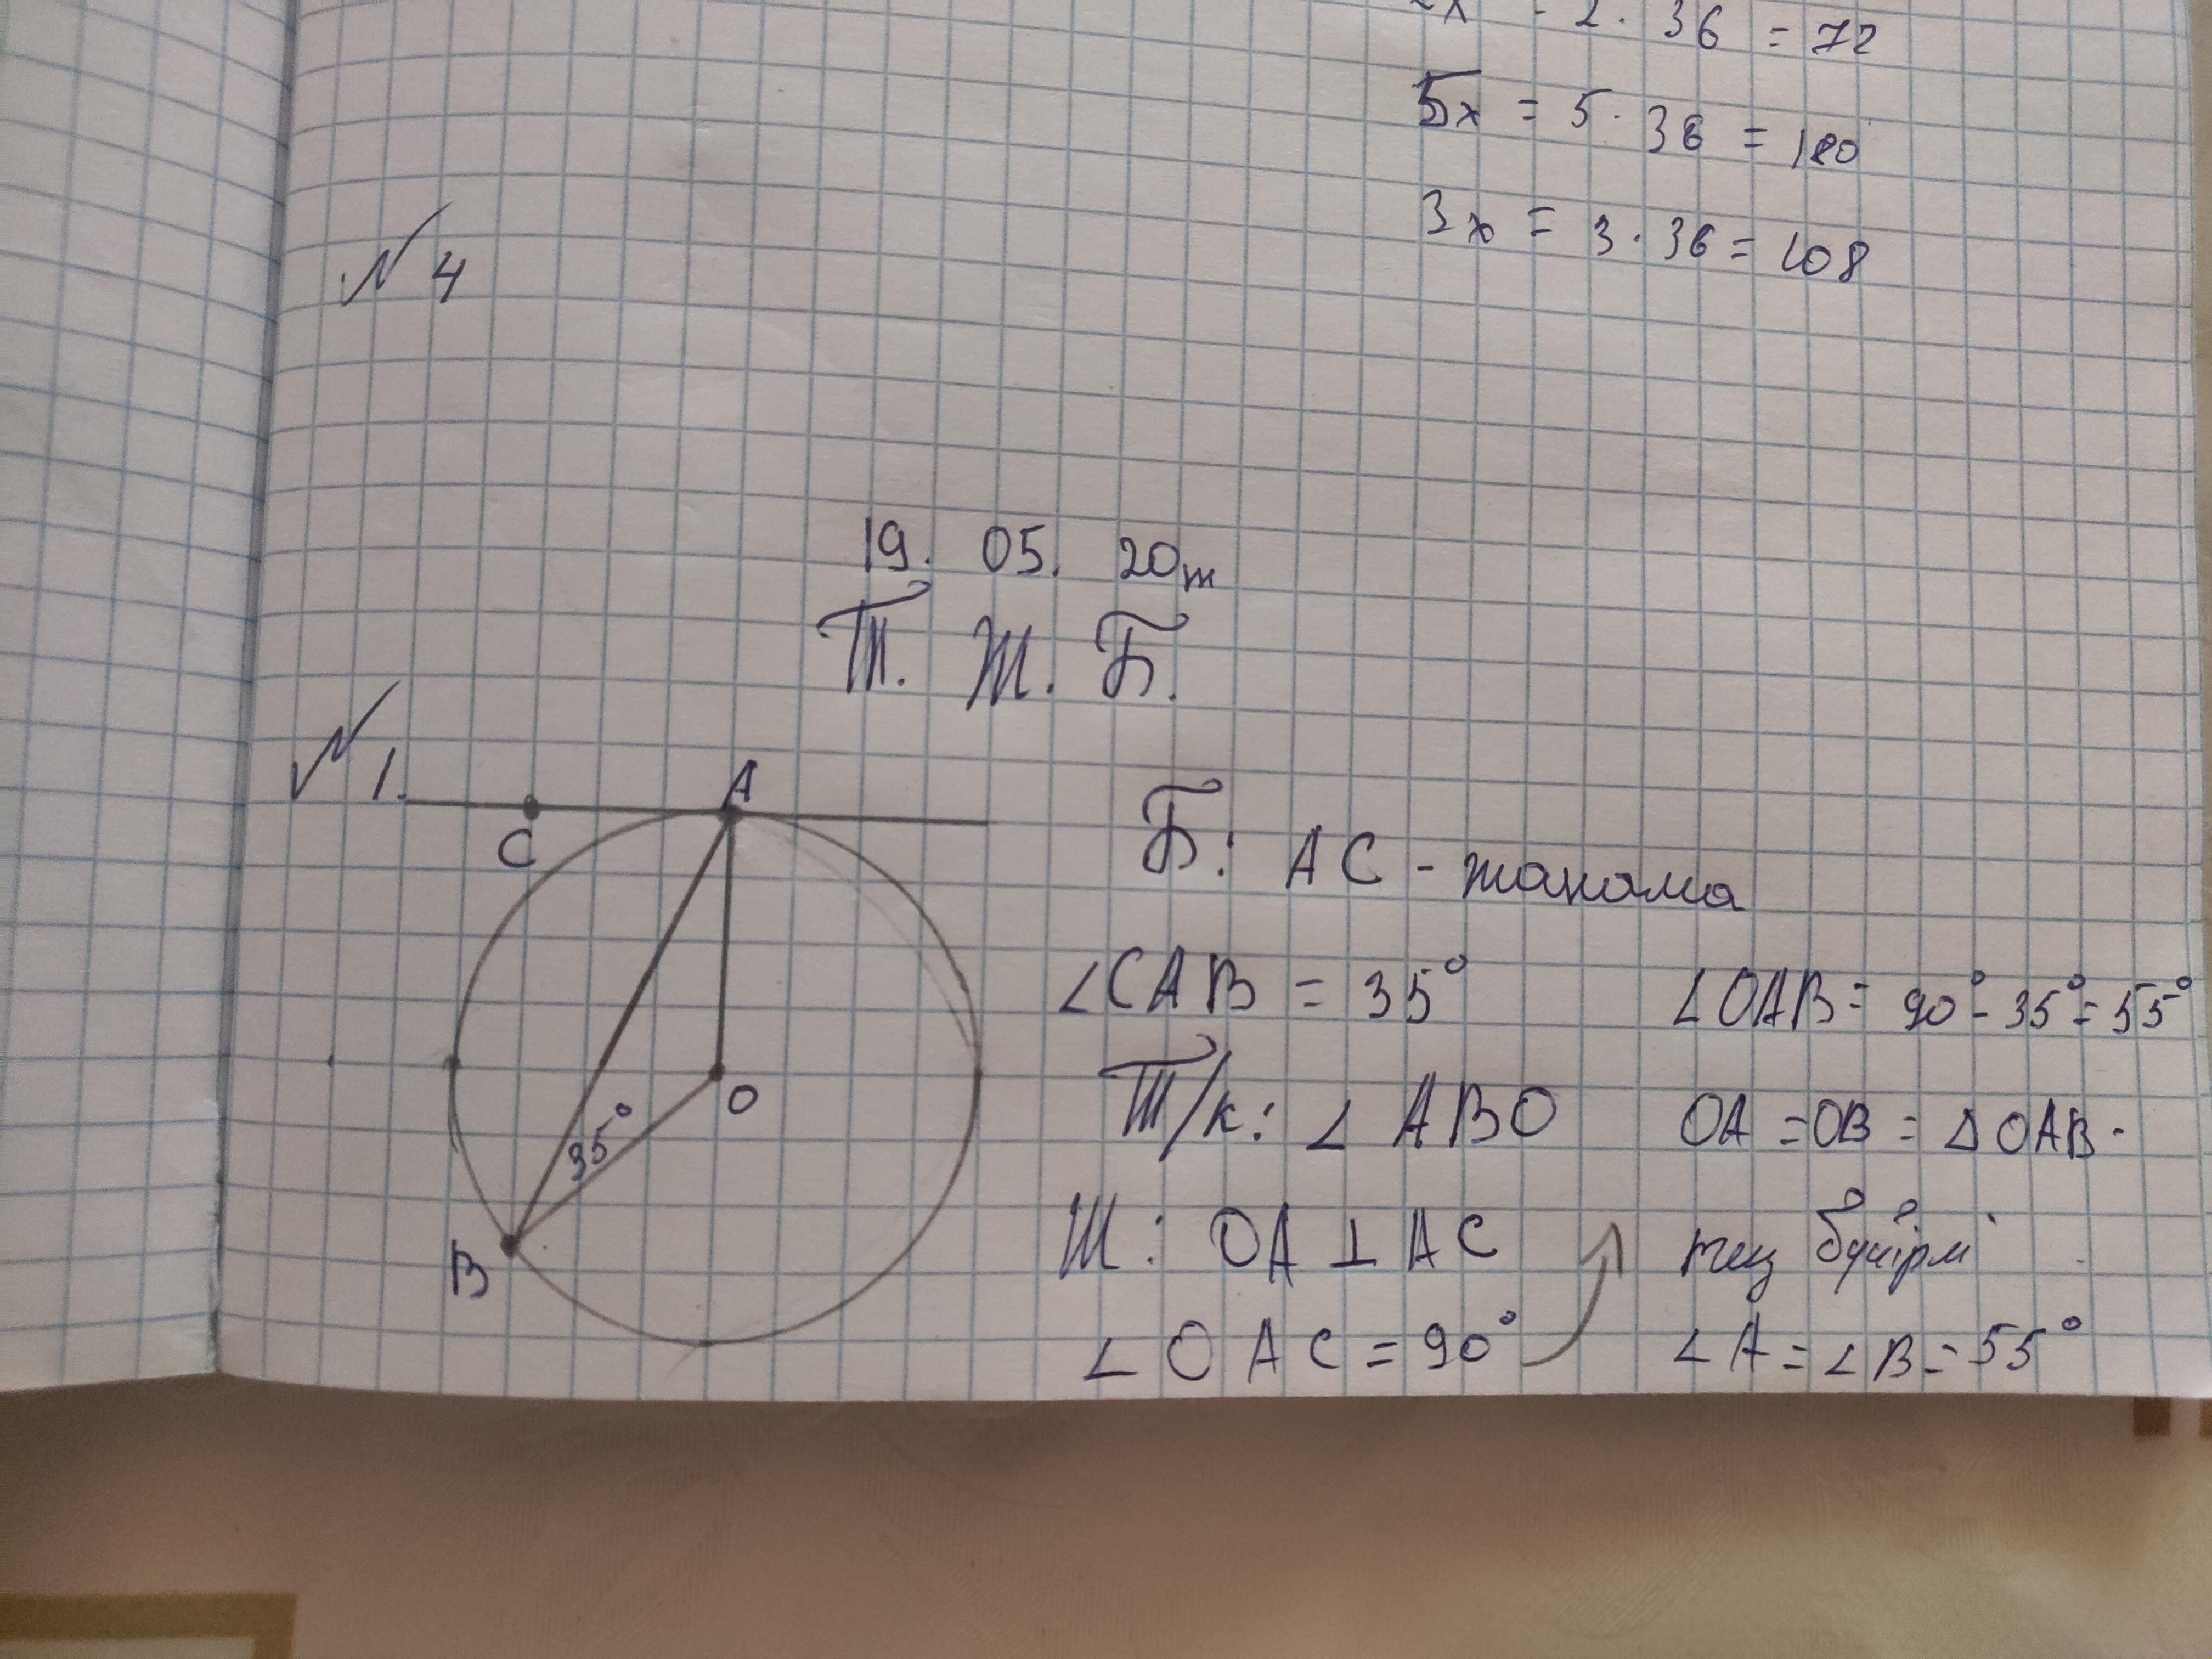 2x = 2 · 36 = 72
5x = 5 · 36 = 180
3x = 3 · 36 = 108
№ 4
19. 05. 20ж
Т. Ж. Б.
№ 1.
A
C
O
35°
B
Б: AC - жанама
∠CAB = 35°
Т/к: ∠ ABO
Ш: OA ⊥ AC
∠ OAC = 90°
∠OAB = 90° - 35° = 55°
OA = OB = Δ OAB -
тең бүйірлі
∠A = ∠B = 55°